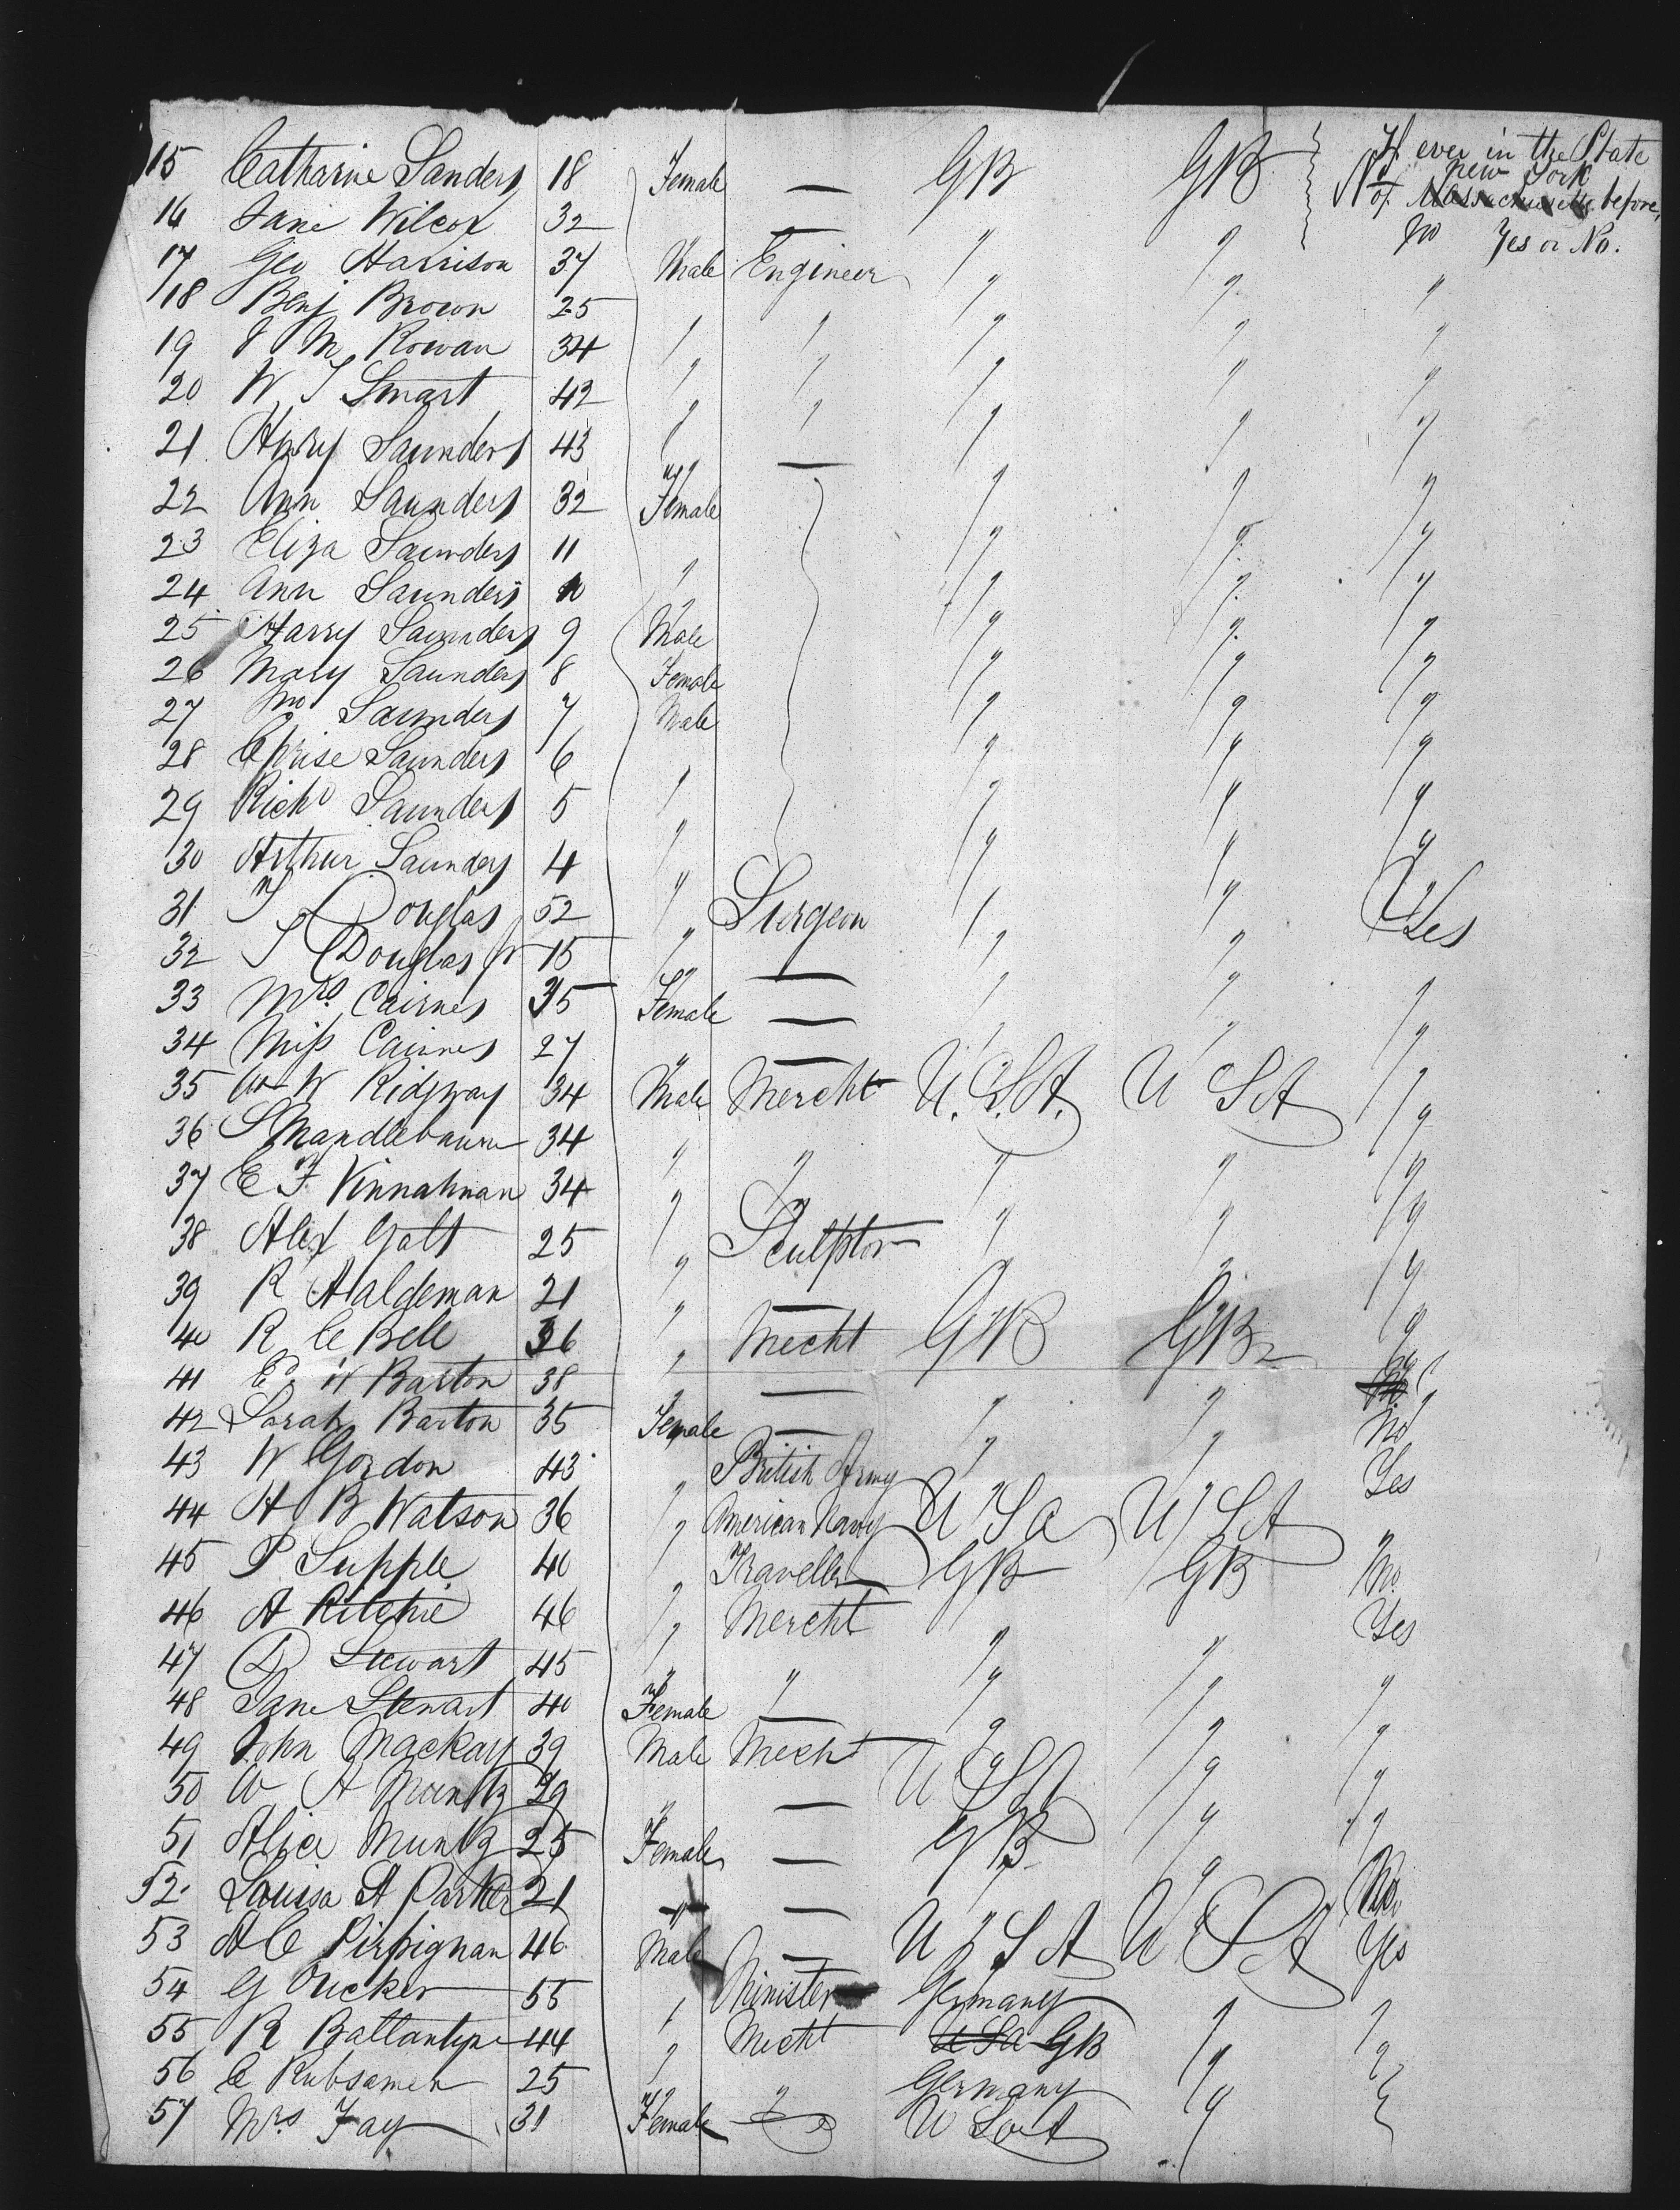 If ever in the State
New York
of Massachusetts before,
Yes or No.
15 Catharine Sanders 18 Female — GB GB No
16 Jane Wilcox 32 " — " " no
17 Geo Harrison 37 Male Engineer " " "
18 Benj Brown 25 " " " " "
19 J M Rowan 34 " " " " "
20 W J Smart 42 " " " " "
21 Harry Saunders 43 " — " " "
22 Ann Saunders 32 Female " " "
23 Eliza Saunders 11 " " " "
24 Ann Saunders 10 " " " "
25 Harry Saunders 9 Male " " "
26 Mary Saunders 8 Female " " "
27 Jno Saunders 7 Male " " "
28 Saunders 6 " " " "
29 Richd Saunders 5 " " " "
30 Arthur Saunders 4 " " " "
31 J Douglas 52 " Surgeon " " Yes
32 J Douglas Jr 15 " — " " "
33 Mrs. Cairnes 35 Female — " " "
34 Miss Cairnes 27 " — " " "
35 W Ridgway 34 Male Mercht U.S.A. U S A "
36 S Mandlebaum 34 " " " " "
37 E F Vinnahman 34 " " " " "
38 Alex Galt 25 " Sculptor " " "
39 R Haldeman 21 " — " " "
40 R C Bell 36 " Mecht GB GB "
41 Ed. W Barton 38 " — " " No
42 Sarah Barton 35 Female — " " No
43 W Gordon 43 " British Army " " Yes
44 H B Watson 36 " American Navy U S A U S A "
45 P Supple 40 " Traveller GB GB No
46 A Ritchie 46 " Mercht " " Yes
47 D Stewart 45 " " " " "
48 Jane Stewart 40 Female — " " "
49 John Mackay 39 Male Mecht " " "
50 W H Muntz 29 " — U S A " "
51 Alice Muntz 25 Female — GB " "
52 Louisa A Parker 21 " — " " No
53 A C Pirpignan 46 Male — U S A U S A Yes
54 G 55 " Minister Germany " "
55 R Ballantyne 44 " Mecht U S A GB " "
56 C Rubsamen 25 " " Germany " "
57 Mrs Fay 31 Female — U S A " "